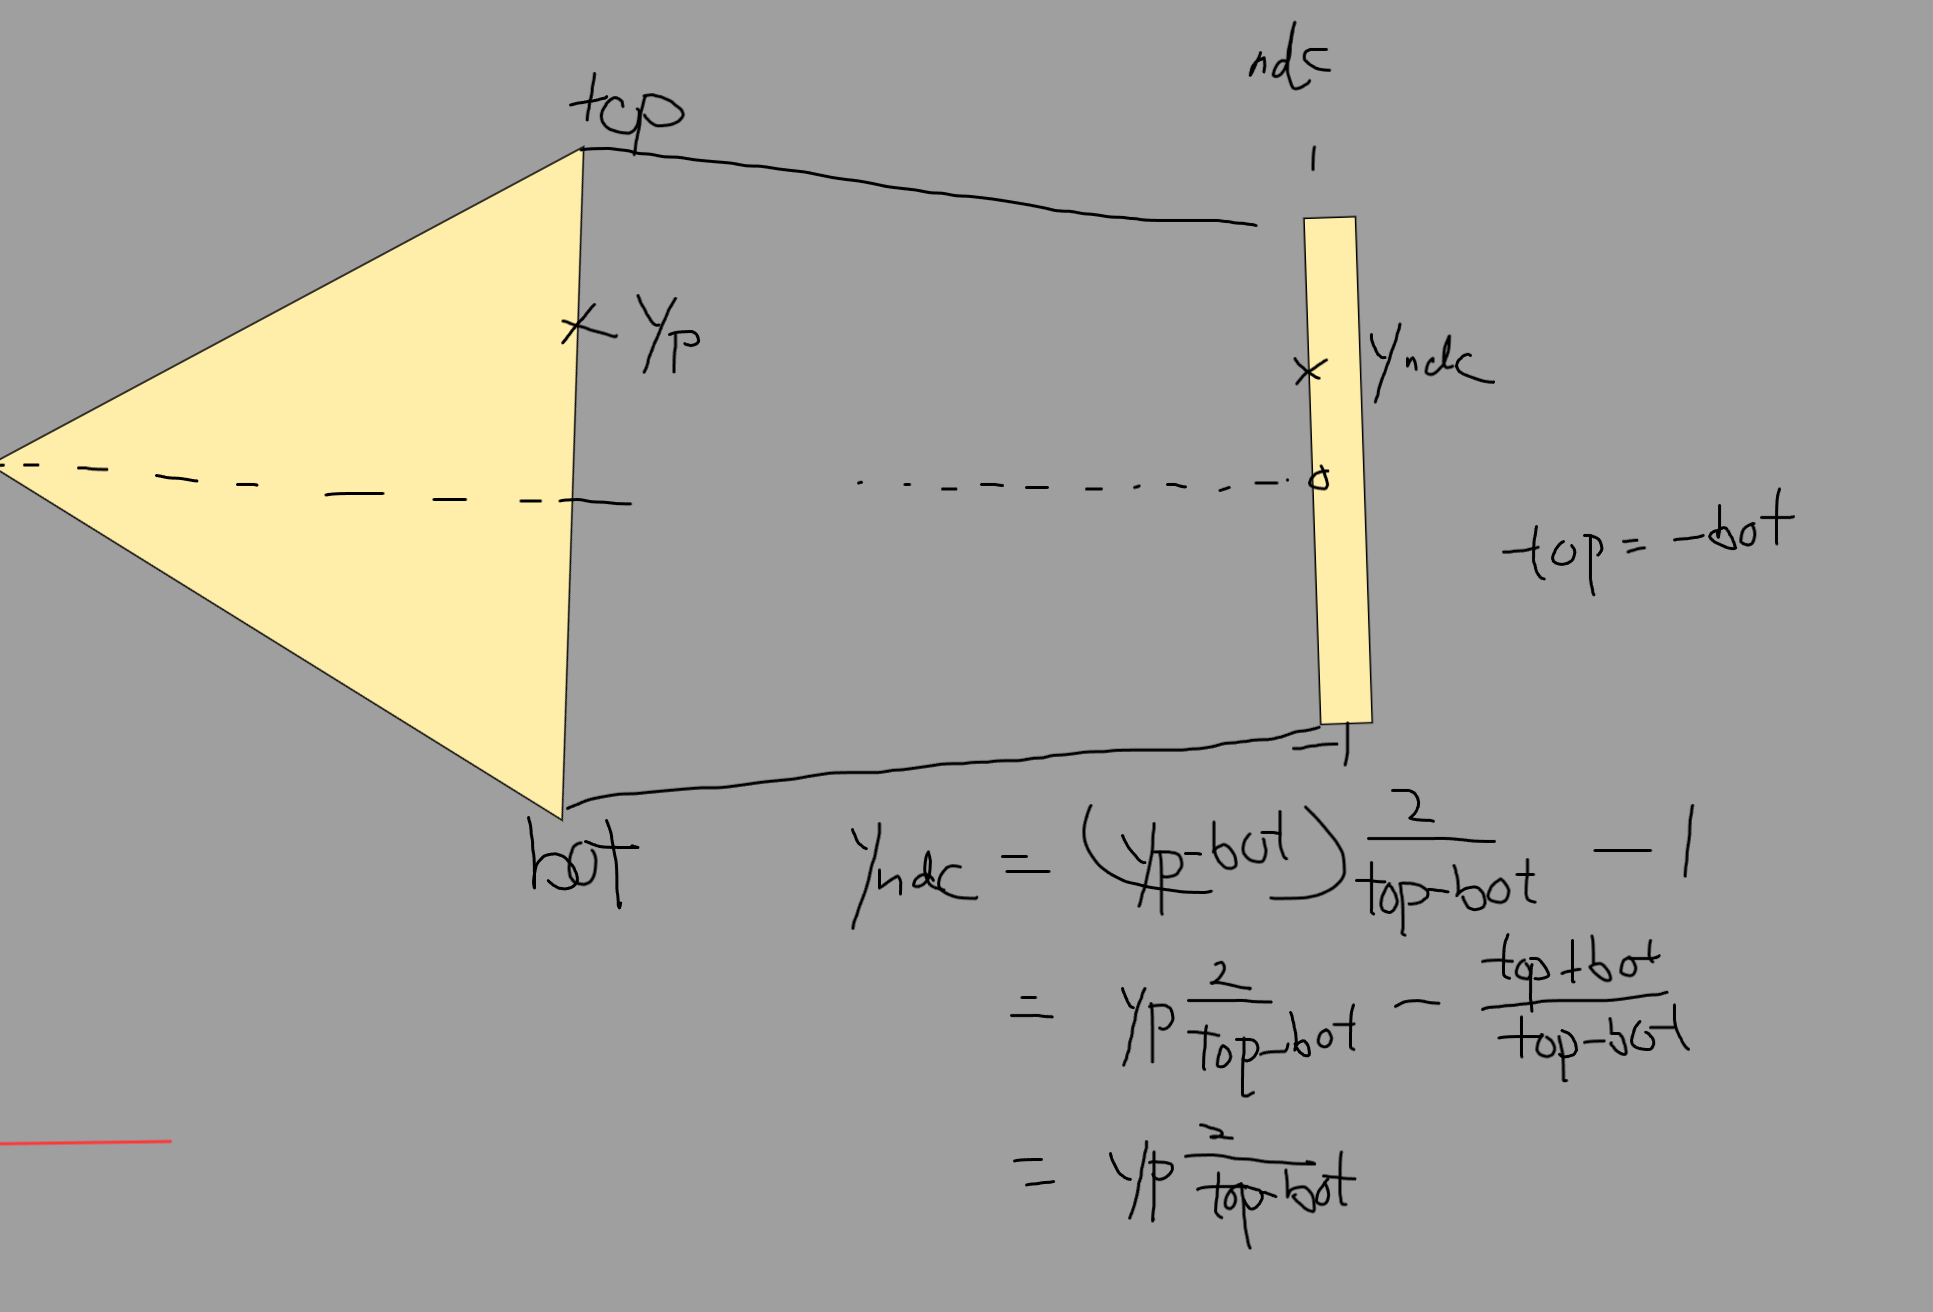 ndc
top
1
yp
yndc
0
top = -bot
-1
bot
yndc = (yp-bot) 2/(top-bot) - 1
= yp 2/(top-bot) - (top+bot)/(top-bot)
= yp 2/(top-bot)